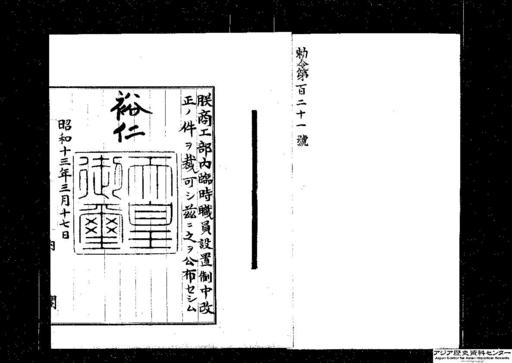 勅令第百二十一號
朕商工部内臨時職員設置制中改
正ノ件ヲ裁可シ茲ニ之ヲ公布セシム
裕仁
天皇御璽
昭和十三年三月十七日
内閣
アジア歴史資料センター
Japan Center for Asian Historical Records